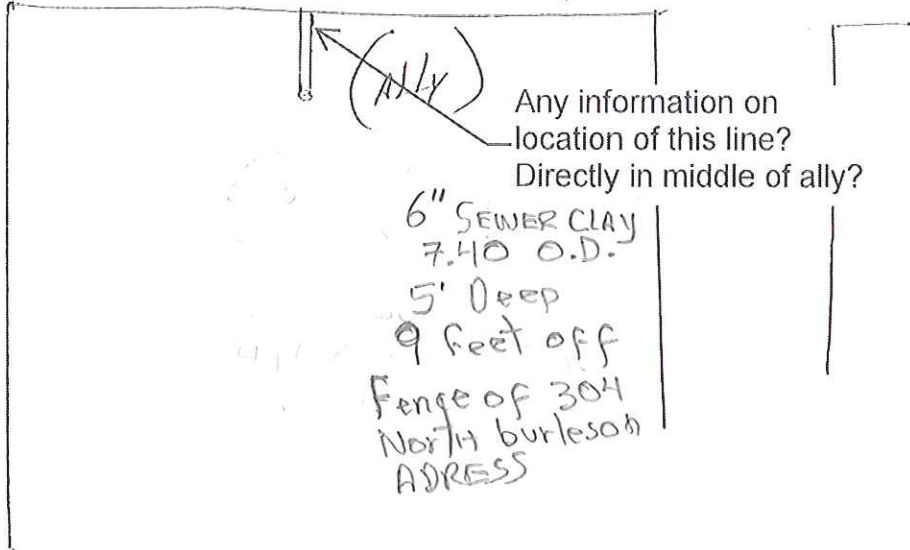 (Ally)
Any information on
location of this line?
Directly in middle of ally?
6" SEWER CLAY
7.40 O.D.
5' Deep
9 feet off
Fenge of 304
North burleson
ADRESS